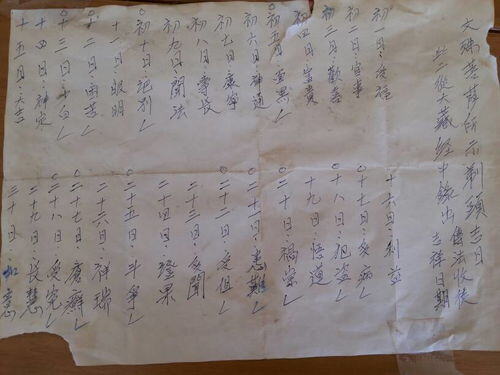 文殊菩薩所示剃頭吉日
此二從大藏經中錄出 傳法收徒 吉祥日期
初一日·受福
初二日·官事
初三日·歡喜
初四日·富貴
○初五日·直累
初六日·神通
○初七日·康寧
初八日·壽長
初九日·聞法
○初十日·記別
十一日·聰明
○十二日·困苦
○十三日·
十四日·
十五日·大吉
十六日·利益
○十七日·多病
○十八日·犯盜
十九日·悟道
○二十日·禍祟
○二十一日·
○二十二日·受阻
○二十三日·多聞
二十四日·證果
○二十五日·斗爭
二十六日·祥瑞
○二十七日·瘡癬
○二十八日·受
二十九日·長慧
三十日·如意